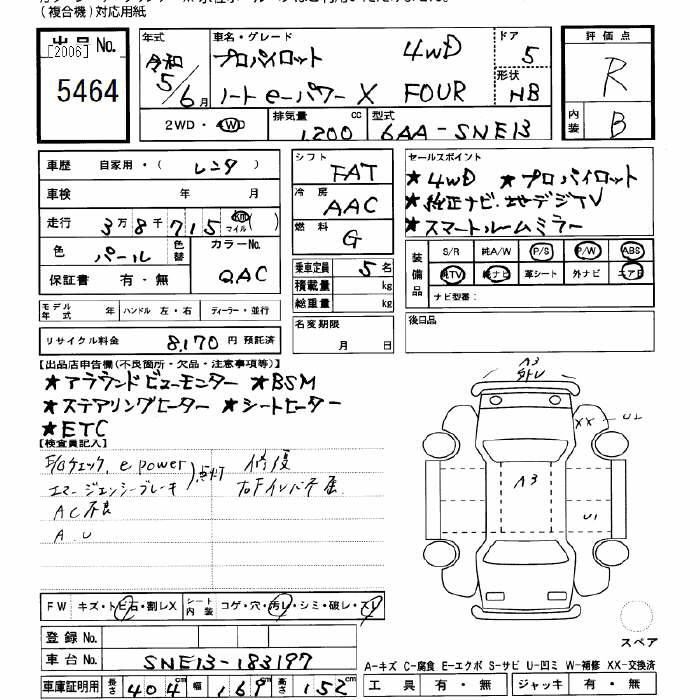 (複合機)対応用紙
出品No. [2006] 5464
年式 令和 5/6月
車名・グレード プロパイロット 4WD
ノート eーパワー X FOUR
ドア 5
形状 HB
評価点 R
内装 B
2WD・4WD 排気量 1200 cc 型式 6AA-SNE13
車歴 自家用・( レンタ )
車検 年 月
走行 3万8千715 km マイル( )
色 パール 色替 カラーNo. QAC
保証書 有・無
シフト FAT
冷房 AAC
燃料 G
乗車定員 5名
積載量 kg
総重量 kg
セールスポイント
★4WD ★プロパイロット
★純正ナビ.地デジTV
★スマートルームミラー
装備品 S/R 純A/W P/S P/W ABS
純TV 純ナビ 革シート 外ナビ エアB
ナビ型番:
モデル年式 年 ハンドル 左・右 ディーラー・並行
名変期限 月 日
後日品
リサイクル料金 8,170円 預託済
【出品店申告欄(不良箇所・欠品・注意事項等)】
★アラウンドビューモニター ★BSM
★ステアリングヒーター ★シートヒーター
★ETC
【検査員記入】
F/Gチェック、e power 点灯 修復
エマージェンシーブレーキ
AC不良
A.U
A3
外レ
XX U2
A3
U1
FW キズ・トビ石・割レX シート内装 コゲ・穴・汚レ・シミ・破レ・スレ
登録No.
車台No. SNE13-183197
車庫証明用 長さ 404cm 幅 169cm 高さ 152cm
スペア
A-キズ C-腐食 E-エクボ S-サビ U-凹ミ W-補修 XX-交換済
工具 有・無 ジャッキ 有・無